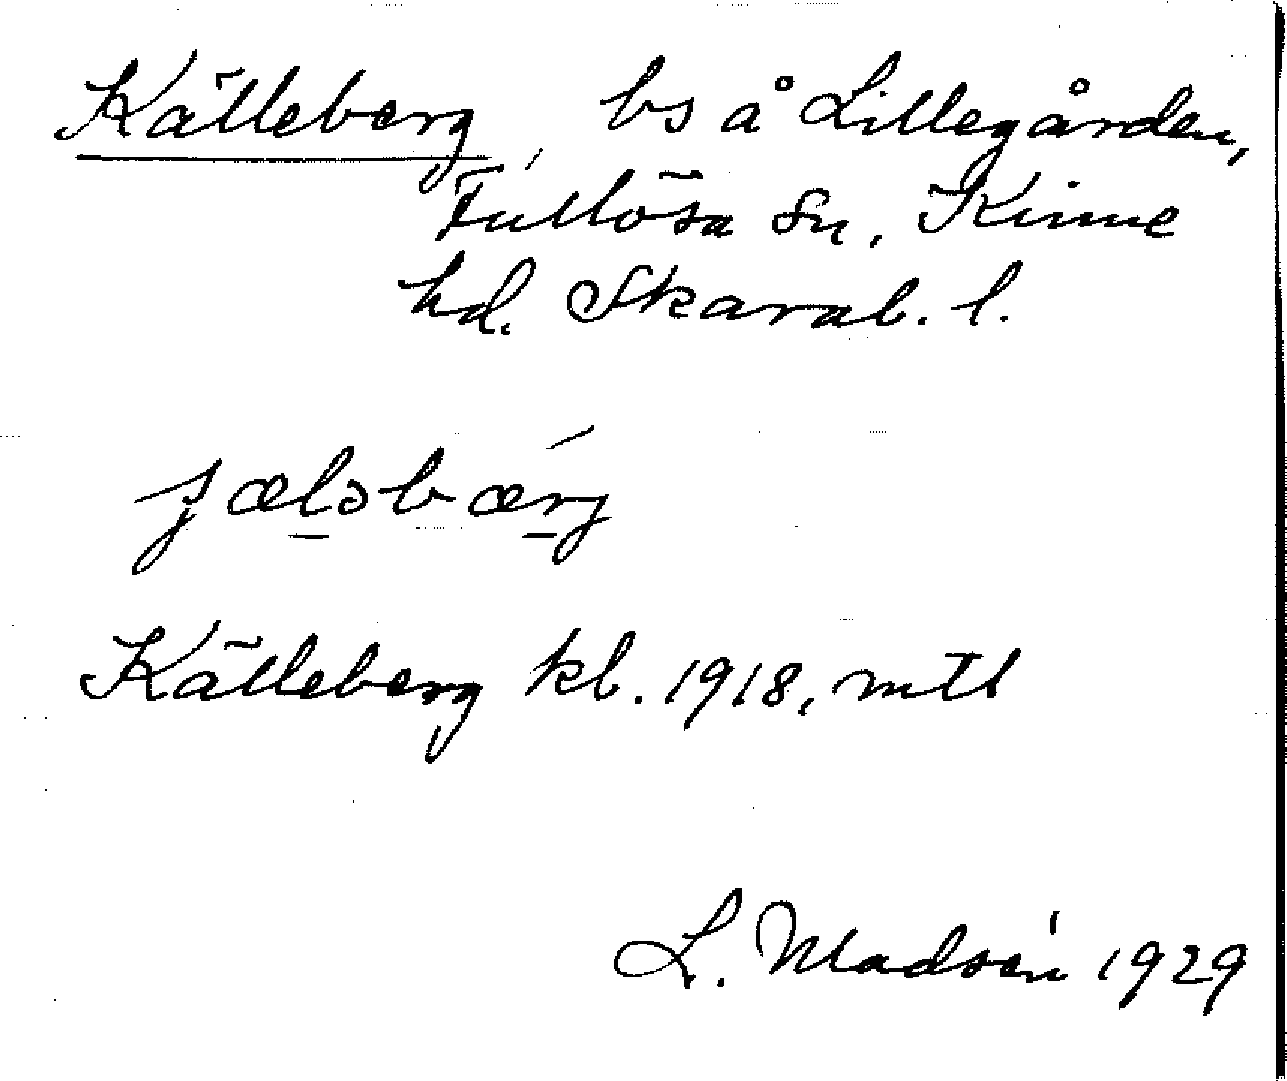 Källeberg, bs å Lillegården,
Fullösa Sn, Kinne
hd. Skarab. l.
ʃæləbærj
Källeberg kl. 1918, mtl
L. Madsén 1929